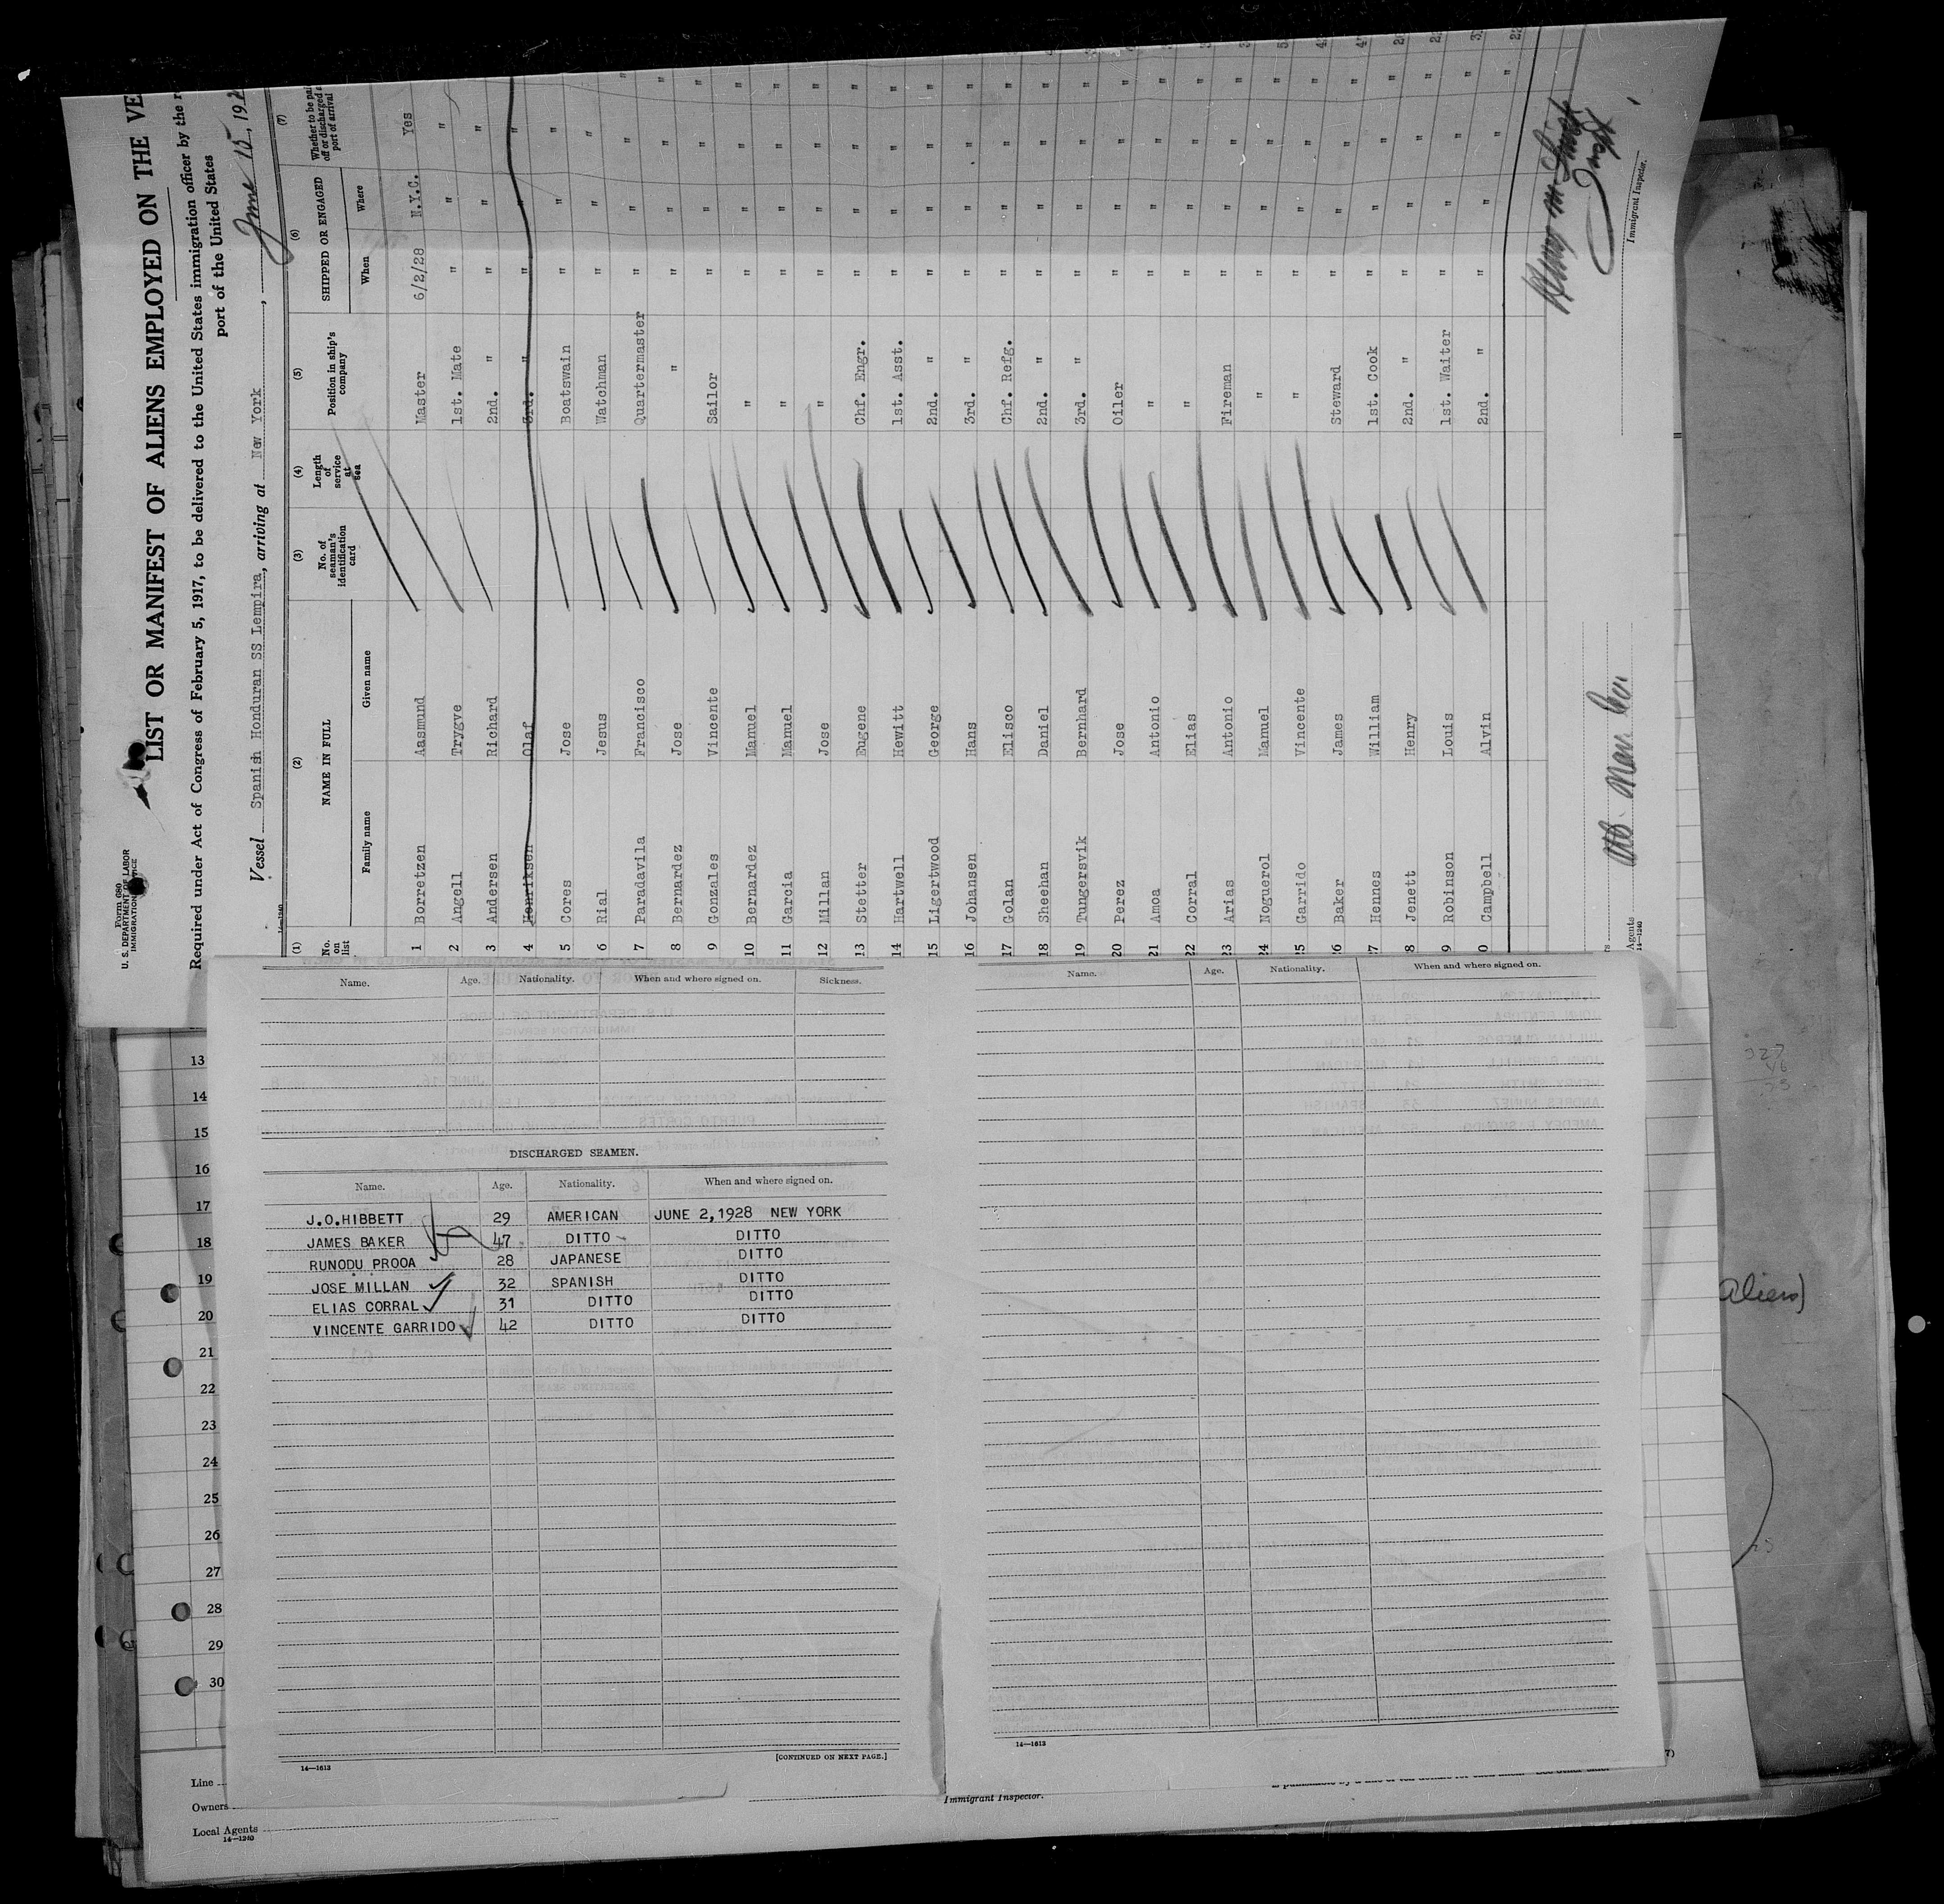 Form 680
U. S. DEPARTMENT OF LABOR
IMMIGRATION SERVICE
LIST OR MANIFEST OF ALIENS EMPLOYED ON THE VE
Required under Act of Congress of February 5, 1917, to be delivered to the United States immigration officer by the r
port of the United States
Vessel Spanish Honduran SS Lempira, arriving at New York, June 15, 192
14-1240
(1) (2) (3) (4) (5) (6) (7)
No. on list NAME IN FULL No. of seaman's identification card Length of service at sea Position in ship's company SHIPPED OR ENGAGED Whether to be pai off or discharged a port of arrival
Family name Given name When Where
1 Borretzen Aasmund Master 6/2/28 N.Y.C. Yes
2 Angell Trygve 1st. Mate " " "
3 Andersen Richard 2nd. " " " "
4 Henriksen Olaf 3rd. " " " "
5 Cores Jose Boatswain " " "
6 Rial Jesus Watchman " " "
7 Paradavila Francisco Quartermaster " " "
8 Bernardez Jose " " " "
9 Gonzales Vincente Sailor " " "
10 Bernardez Manuel " " " "
11 Garcia Manuel " " " "
12 Millan Jose " " " "
13 Stetter Eugene Chf. Engr. " " "
14 Hartwell Hewitt 1st. Asst. " " "
15 Liggertwood George 2nd. " " " "
16 Johansen Hans 3rd. " " " "
17 Golan Elisco Chf. Refg. " " "
18 Sheehan Daniel 2nd. " " " "
19 Tungersvik Bernhard 3rd. " " " "
20 Perez Jose Oiler " " "
21 Amoa Antonio " " " "
22 Corral Elias " " " "
23 Arias Antonio Fireman " " "
24 Noguerol Manuel " " " "
25 Garrido Vincente " " " "
26 Baker James Steward " " "
27 Hennes William 1st. Cook " " "
8 Jenett Henry 2nd. " " " "
9 Robinson Louis 1st. Waiter " " "
0 Campbell Alvin 2nd. " " " "
Immigrant Inspector.
Agents
14-1240
Name. Age. Nationality. When and where signed on. Sickness.
DISCHARGED SEAMEN.
Name. Age. Nationality. When and where signed on.
J.O.HIBBETT 29 AMERICAN JUNE 2,1928 NEW YORK
JAMES BAKER 47 DITTO DITTO
RUNODU PROOA 28 JAPANESE DITTO
JOSE MILLAN 32 SPANISH DITTO
ELIAS CORRAL 31 DITTO DITTO
VINCENTE GARRIDO 42 DITTO DITTO
[CONTINUED ON NEXT PAGE.]
14—1613
Name. Age. Nationality. When and where signed on.
14—1613
13
14
15
16
17
18
19
20
21
22
23
24
25
26
27
28
29
30
Line
Owners
Local Agents
14—1240
Immigrant Inspector.
Aliens)